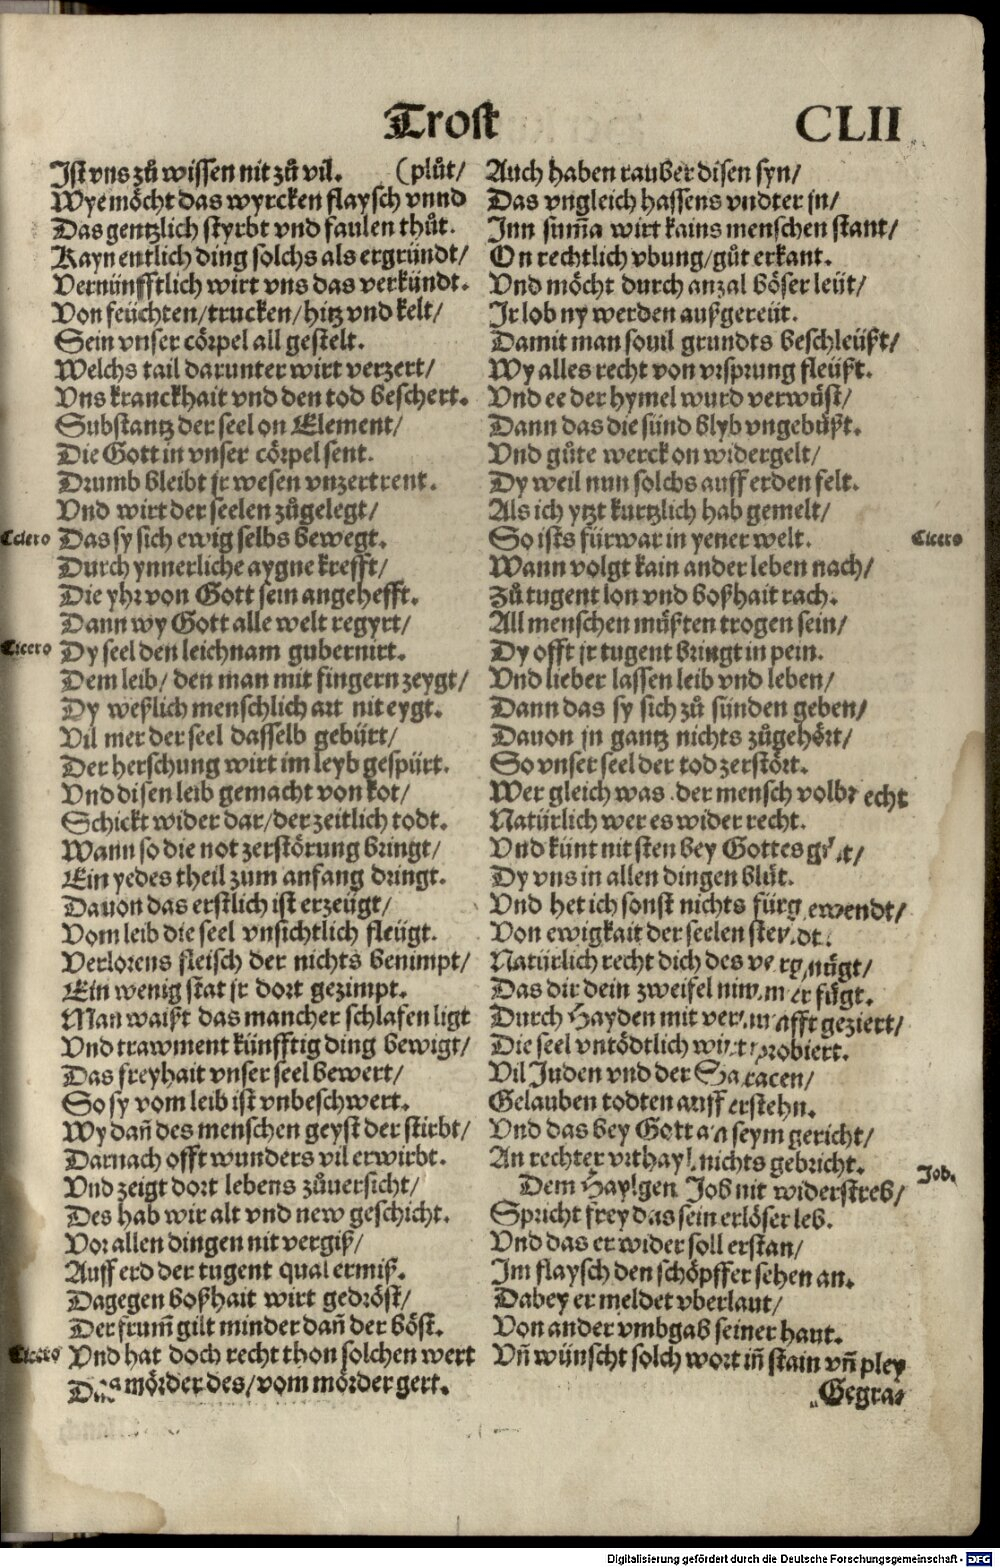 Trost
CLII
Ist vns zů wissen nit zů vil. (plůt/
Wye möcht das wyrcken flaysch vnnd
Das gentzlich styrbt vnd faulen thůt.
Kayn entlich ding solchs als ergründt/
Vernünfftlich wirt vns das verkündt.
Von feüchten/trucken/hitz vnd kelt/
Sein vnser cörpel all gestelt.
Welchs tail darunter wirt verzert/
Vns kranckhait vnd den tod beschert.
Substantz der seel on Element/
Die Gott in vnser cörpel sent.
Drumb bleibt jr wesen vnzertrent.
Vnd wirt der seelen zůgelegt/
Das sy sich ewig selbs bewegt.
Durch ynnerliche aygne krefft/
Die yhr von Gott sein angehefft.
Dann wy Gott alle welt regyrt/
Cicero
Dy seel den leichnam gubernirt.
Dem leib/ den man mit fingern zeygt/
Dy weßlich menschlich art nit eygt.
Vil mer der seel dasselb gebürt/
Der herschung wirt im leyb gespürt.
Vnd disen leib gemacht von kot/
Schickt wider dar/der zeitlich todt.
Wann so die not zerstörung bringt/
Ein yedes theil zum anfang dringt.
Dauon das erstlich ist erzeügt/
Vom leib die seel vnsichtlich fleügt.
Verlorens fleisch der nichts benimpt/
Ein wenig stat jr dort gezimpt.
Man waißt das mancher schlafen ligt
Vnd trawment künfftig ding bewigt/
Das freyhait vnser seel bewert/
So sy vom leib ist vnbeschwert.
Wy dañ des menschen geyst der stirbt/
Darnach offt wunders vil erwirbt.
Vnd zeigt dort lebens zůuersicht/
Des hab wir alt vnd new geschicht.
Vor allen dingen nit vergiß/
Auff erd der tugent qual ermiß.
Dagegen boßhait wirt gedröst/
Der frum̃ gilt minder dañ der böst.
Vnd hat doch recht thon solchen wert
mörder des/vom mörder gert.
Auch haben rauber disen syn/
Das vngleich hassens vndter jn/
Inn sum̃a wirt kains menschen stant/
On rechtlich vbung/gůt erkant.
Vnd möcht durch anzal böser leüt/
Ir lob ny werden außgereüt.
Damit man souil grundts beschleüßt/
Wy alles recht von vrsprung fleüßt.
Vnd ee der hymel wurd verwüst/
Dann das die sünd blyb vngebüßt.
Vnd gůte werck on widergelt/
Dy weil nun solchs auff erden felt.
Als ich ytzt kurtzlich hab gemelt/
So ists fürwar in yener welt.
Cicero
Wann volgt kain ander leben nach/
Zů tugent lon vnd boßhait rach.
All menschen můßten trogen sein/
Dy offt jr tugent bringt in pein.
Vnd lieber lassen leib vnd leben/
Dann das sy sich zů sünden geben/
Dauon jn gantz nichts zůgehört/
So vnser seel der tod zerstört.
Wer gleich was der mensch volbrecht
Natürlich wer es wider recht.
Vnd künt nit sten bey Gottes
Dy vns in allen dingen blüt.
Vnd het ich sonst nichts fürgewendt/
Von ewigkait der seelen
Natürlich recht dich des vergnügt/
Das dir dein zweifel nimmer fügt.
Durch Hayden mit vernunfft geziert/
Die seel vntödtlich wirt probiert.
Vil Juden vnd der Saracen/
Gelauben todten aufferstehn.
Vnd das bey Gott an seym gericht/
An rechter vrthayl nichts gebricht.
Job.
Dem Haylgen Job nit widerstreb/
Spricht frey das sein erlöser leb.
Vnd das er wider soll erstan/
Im flaysch den schöpffer sehen an.
Dabey er meldet vberlaut/
Von ander vmbgab seiner haut.
Vñ wünscht solch wort iñ stain vñ pley
Gegra⸗
Digitalisierung gefördert durch die Deutsche Forschungsgemeinschaft - DFG